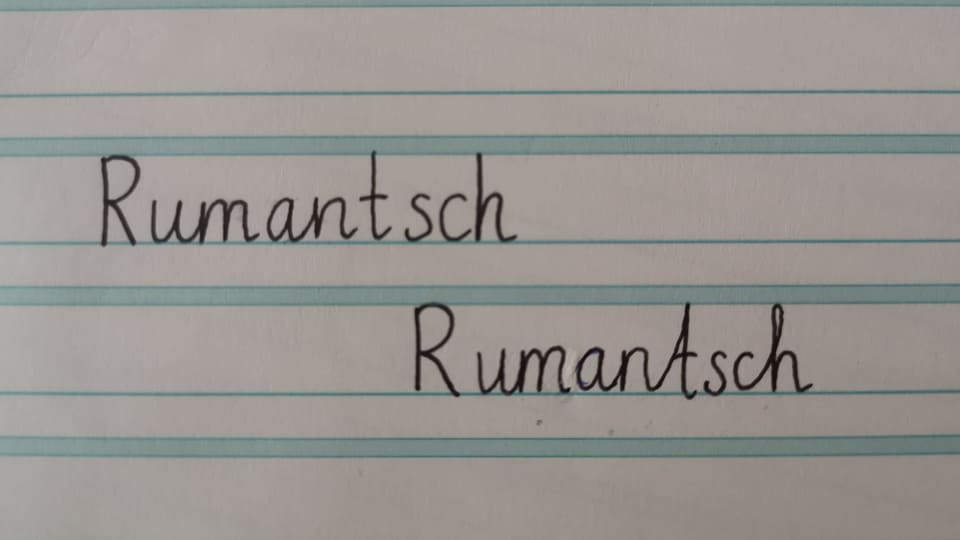 Rumantsch
Rumantsch